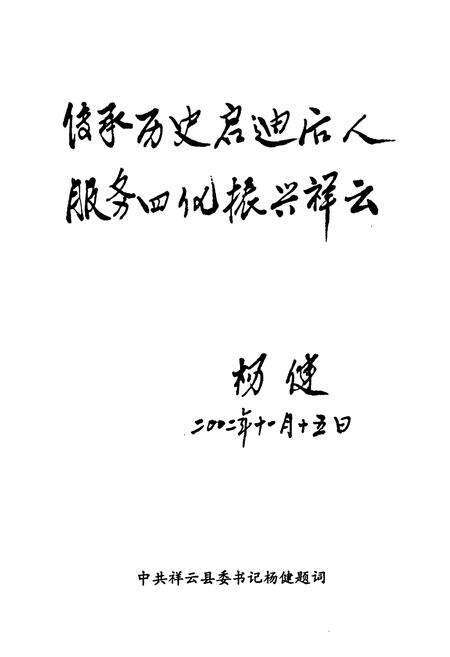 传承历史启迪后人
服务四化振兴祥云
杨健
二00二年十一月十五日
中共祥云县委书记杨健题词